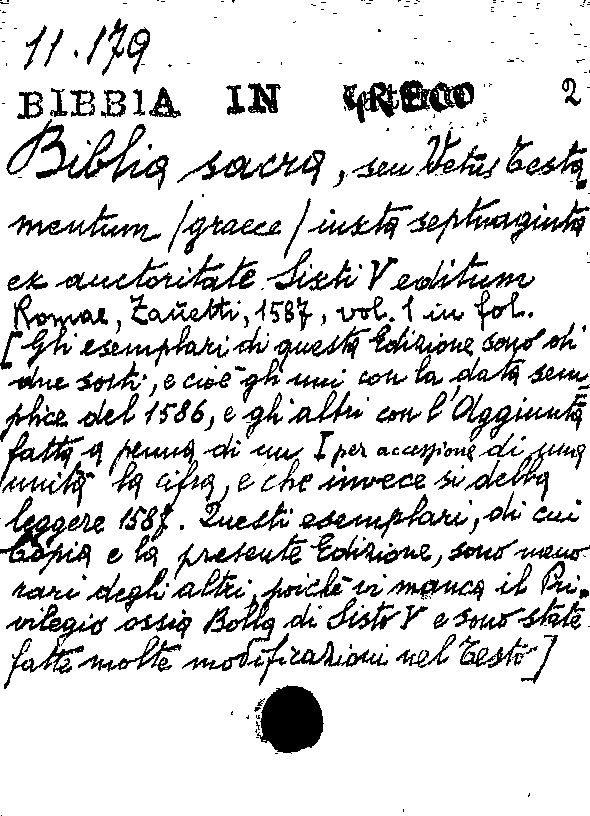 11.179
BIBBIA IN GRECO 2
Biblia sacra, seu Vetus Testa
mentum /graece/ iuxta septuaginta
ex auctoritate Sixti V editum
Romae, Zanetti, 1587, vol. 1 in fol.
[Gli esemplari di questa Edizione sono di
due sorti, e cioè gli uni con la data sem=
plice del 1586, e gli altri con l'Aggiunta
fatta a penna di un I per accessione di una
unità la cifra, e che invece si debba
leggere 1587. Questi esemplari, di cui
Copia e la presente Edizione, sono meno
rari degli altri, poichè vi manca il Pri=
vilegio ossia Bolla di Sisto V e sono state
fatte molte modificazioni nel Testo]